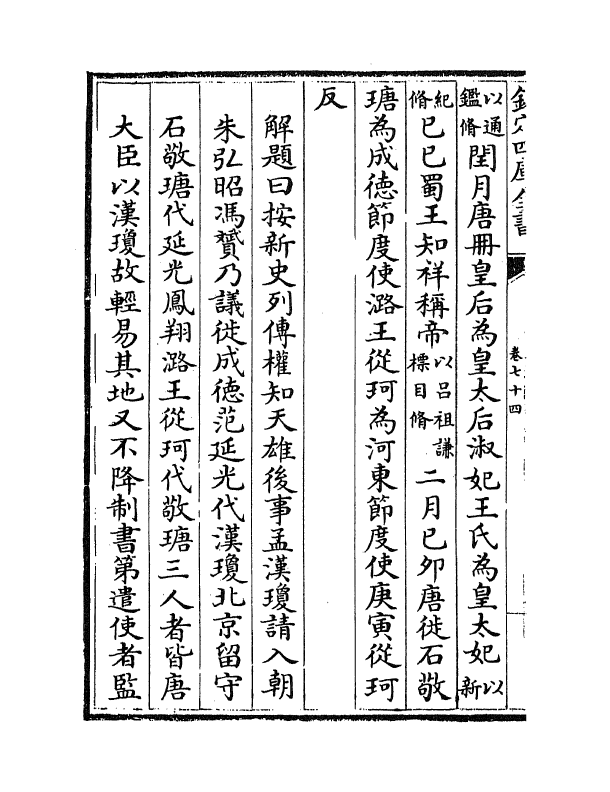 欽定四庫全書
卷七十四
以通鑑脩閏月唐冊皇后為皇太后淑妃王氏為皇太妃以新
紀脩己巳蜀王知祥稱帝以吕祖謙標目脩二月己卯唐徙石敬
瑭為成徳節度使潞王從珂為河東節度使庚寅從珂
反
解題曰按新史列傳權知天雄後事孟漢瓊請入朝
朱弘昭馮贇乃議徙成徳范延光代漢瓊北京留守
石敬瑭代延光鳳翔潞王從珂代敬瑭三人者皆唐
大臣以漢瓊故輕易其地又不降制書第遣使者監